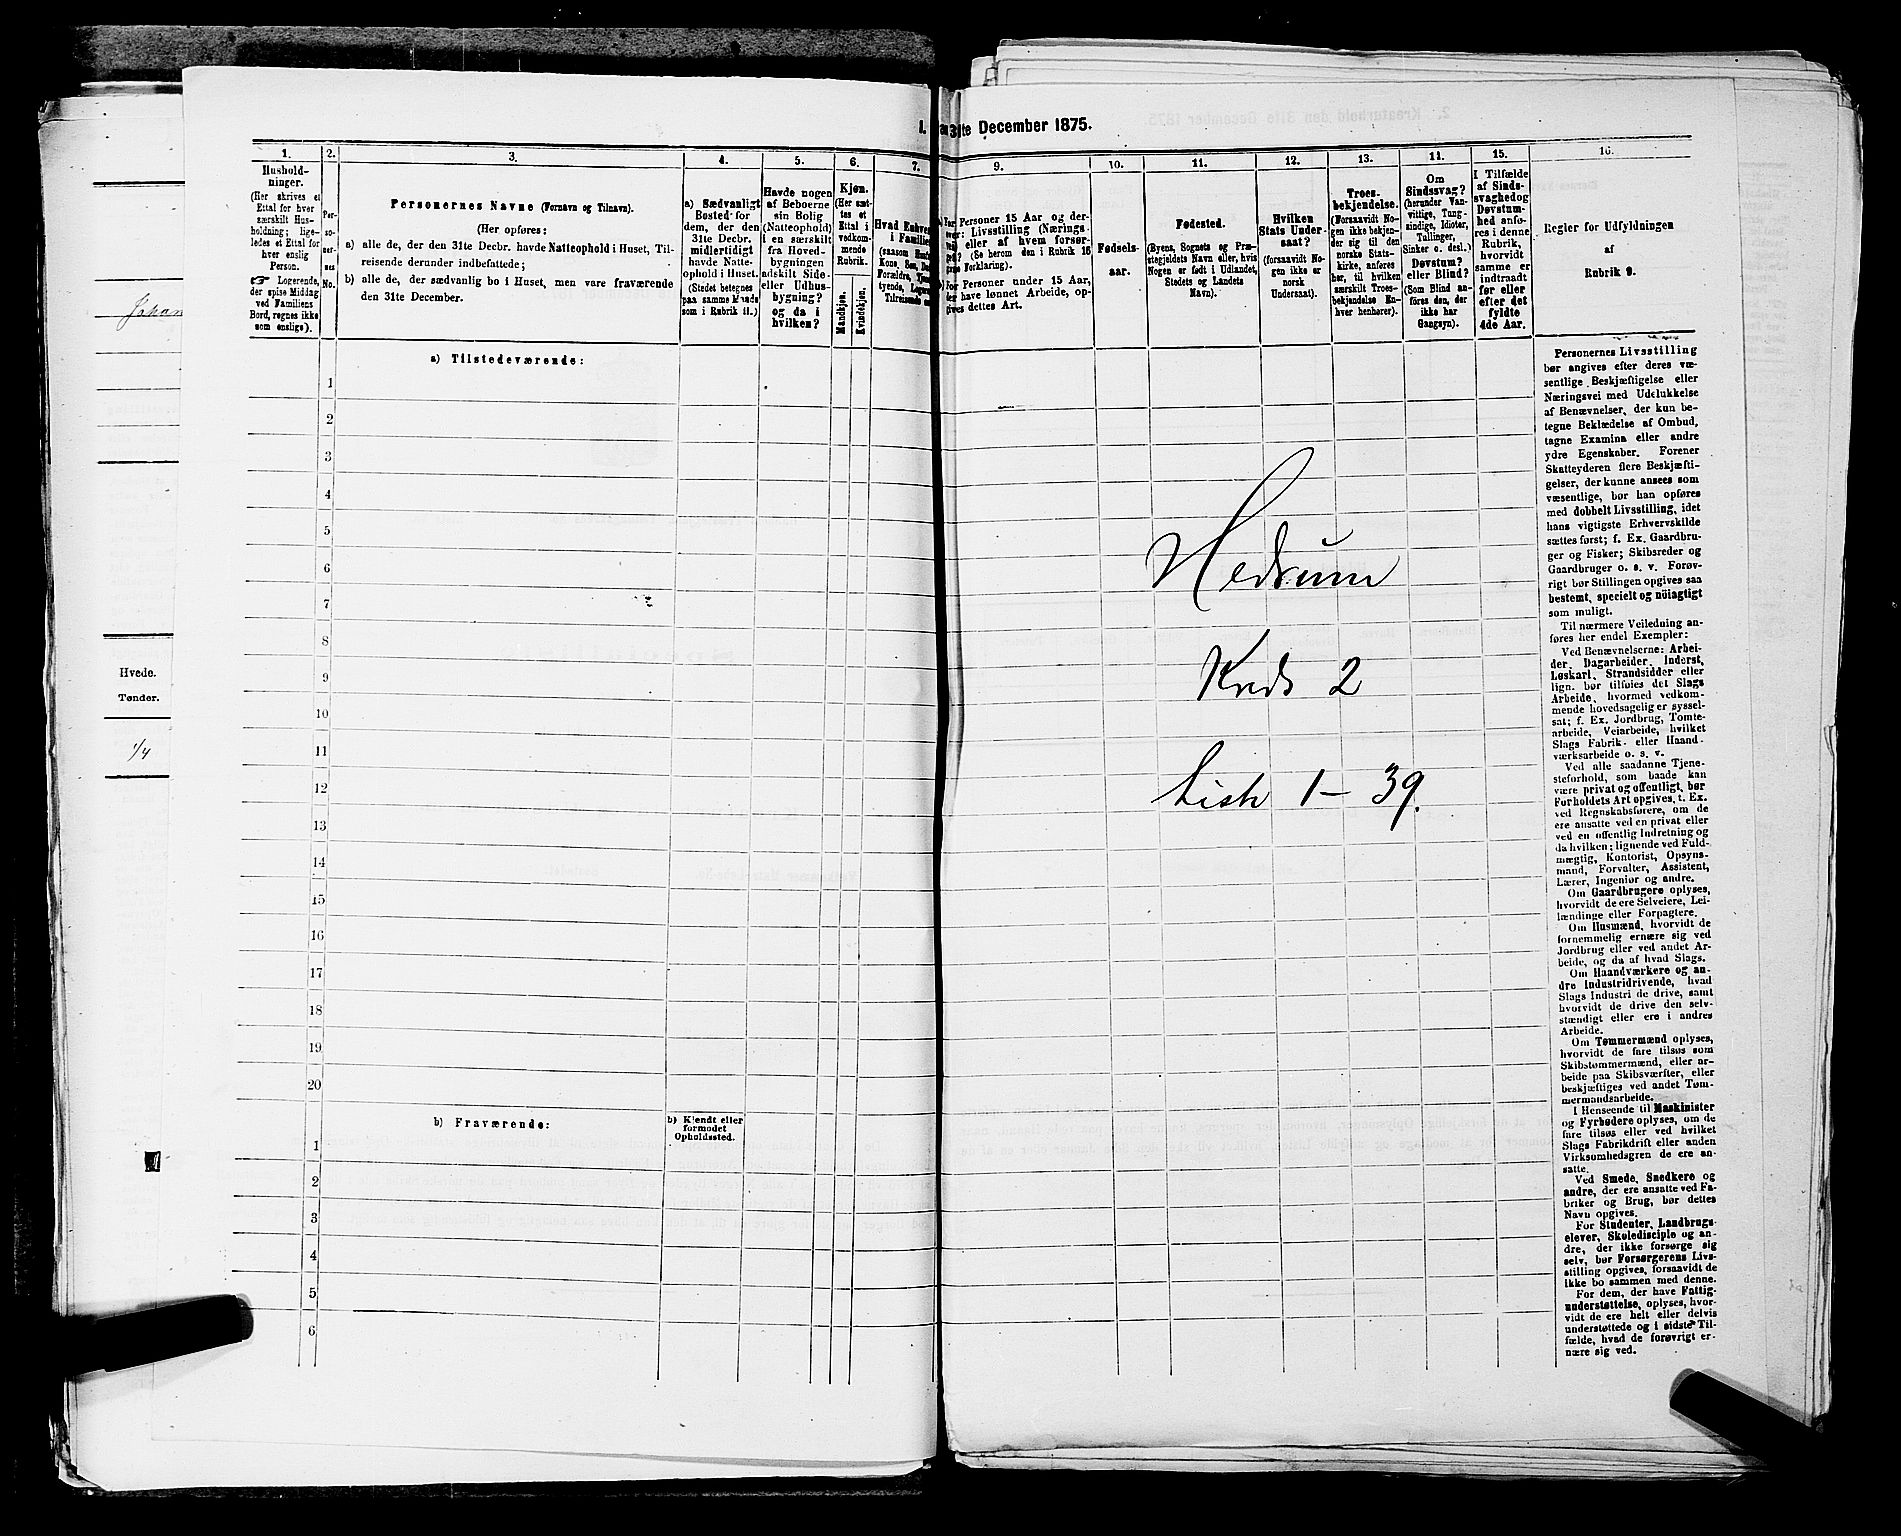 Johan
Hvede.
Tønder.
1/4
31te December 1875.
1.
Hushold-
ninger.
(Her skrives et
Ettal for hver
særskilt Hus-
holdning; lige-
ledes et Ettal for
hver enslig
Person.
☞ Logerende,
der spise Middag
ved Familiens
Bord, regnes ikke
som enslige).
2.
Per-
so-
ner-
nes
No.
3.
Personernes Navne (Fornavn og Tilnavn).
(Her opføres:
a) alle de, der den 31te Decbr. havde Natteophold i Huset, Til-
reisende derunder indbefattede;
b) alle de, der sædvanlig bo i Huset, men vare fraværende
den 31te December.
4.
a) Sædvanligt
Bosted for
dem, der den
31te Decbr.
midlertidigt
havde Natte-
ophold i Huset.
(Stedet betegnes
paa samme Maade
som i Rubrik 11.)
5.
Havde nogen
af Beboerne
sin Bolig
(Natteophold)
i en særskilt
fra Hoved-
bygningen
adskilt Side-
eller Udhus-
bygning?
og da i
hvilken?
6.
Kjøn.
(Her sæt-
tes et
Ettal i
vedkom-
mende
Rubrik.
Mandkjøn.
Kvindekjøn.
7.
Hvad Enhver
i Familien
(saasom
Kone, Søn,
Forældre,
tyende,
Tilreisende
9.
Personer 15 Aar og der-
Livsstilling (Nærings-
eller af hvem forsør-
(Se herom den i Rubrik 16
Forklaring).
Personer under 15 Aar,
have lønnet Arbeide, op-
gives dettes Art.
10.
Fødsels-
aar.
11.
Fødested.
(Byens, Sognets og Præ-
stegjeldets Navn eller, hvis
Nogen er født i Udlandet,
Stedets og Landets
Navn).
12.
Hvilken
Stats Under-
saat?
(forsaavidt No-
gen ikke er
norsk
Undersaat).
13.
Troes-
bekjendelse.
(Forsaavidt No-
gen ikke bekjen-
der sig til den
norske Stats-
kirke, anføres
her, til hvilken
særskilt Troes-
bekjendelse En-
hver henhører).
14.
Om
Sindssvag?
(herunder Van-
vittige, Tung-
sindige, Idioter,
Tullinger,
Sinker o. desl.)
Døvstum?
eller Blind?
(Som Blind an-
føres den, der
ikke har
Gangsyn).
15.
I Tilfælde
af Sinds-
svaghed og
Døvstum-
hed anfø-
res i denne
Rubrik,
hvorvidt
samme er
indtraadt
før eller
efter det
fyldte
4de Aar.
16.
Regler for Udfyldningen
af
Rubrik 9.
a) Tilstedeværende:
1
2
3
4
5
6
7
8
9
10
11
12
13
14
15
16
17
18
19
20
b) Fraværende:
b) Kjendt eller
formodet
Opholdssted.
1
2
3
4
5
6
Hedrum
Kreds 2
Liste 1 – 39.
Personernes Livsstilling
bør angives efter deres væ-
sentlige Beskjæftigelse eller
Næringsvei med Udelukkelse
af Benævnelser, der kun be-
tegne Beklædelse af Ombud,
tagne Examina eller andre
ydre Egenskaber. Forener
Skatteyderen flere Beskjæfti-
gelser, der kunne ansees som
væsentlige, bør han opføres
med dobbelt Livsstilling, idet
hans vigtigste Erhvervskilde
sættes først; f. Ex. Gaardbru-
ger og Fisker; Skibsreder og
Gaardbruger o. s. v. Forøv-
rigt bør Stillingen opgives saa
bestemt, specielt og nöiagtigt
som muligt.
Til nærmere Veiledning an-
føres her endel Exempler:
Ved Benævnelserne: Arbei-
der, Dagarbeider, Inderst,
Løskarl, Strandsidder eller
lign. bør tilføies det Slags
Arbeide, hvormed vedkom-
mende hovedsagelig er syssel-
sat; f. Ex. Jordbrug, Tomte-
arbeide, Veiarbeide, hvilket
Slags Fabrik- eller Haand-
værksarbeide o. s. v.
Ved alle saadanne Tjene-
steforhold, som baade kan
være privat og offentligt, bør
Forholdets Art opgives, t. Ex.
ved Regnskabsførere, om de
ere ansatte ved en privat eller
ved en offentlig Indretning og
da hvilken; lignende ved Fuld-
mægtig, Kontorist, Opsyns-
mand, Forvalter, Assistent,
Lærer, Ingeniør og andre.
Om Gaardbrugere oplyses,
hvorvidt de ere Selveiere, Lei-
lændinge eller Forpagtere.
Om Husmænd, hvorvidt de
fornemmelig ernære sig ved
Jordbrug eller ved andet Ar-
beide, og da af hvad Slags.
Om Haandværkere og an-
dre Industridrivende, hvad
Slags Industri de drive, samt
hvorvidt de drive den selv-
stændigt eller ere i andres
Arbeide.
Om Tømmermænd oplyses,
hvorvidt de fare tilsøs som
Skibstømmermænd, eller ar-
beide paa Skibsværfter, eller
beskjæftiges ved andet Tøm-
mermandsarbeide.
I Henseende til Maskinister
og Fyrbødere oplyses, om de
fare tilsøs eller ved hvilket
Slags Fabrikdrift eller anden
Virksomhedsgren de ere an-
satte.
Ved Smede, Snedkere og
andre, der ere ansatte ved Fa-
briker og Brug, bør dettes
Navn opgives.
For Studenter, Landbrugs-
elever, Skoledisciple og an-
dre, der ikke forsørge sig
selv, bør Forsørgerens Livs-
stilling opgives, forsaavidt de
ikke bo sammen med denne.
For dem, der have Fattig-
understøttelse, oplyses, hvor-
vidt de ere helt eller delvis
understøttede og i sidste Til-
fælde, hvad de forøvrigt er-
nære sig ved.